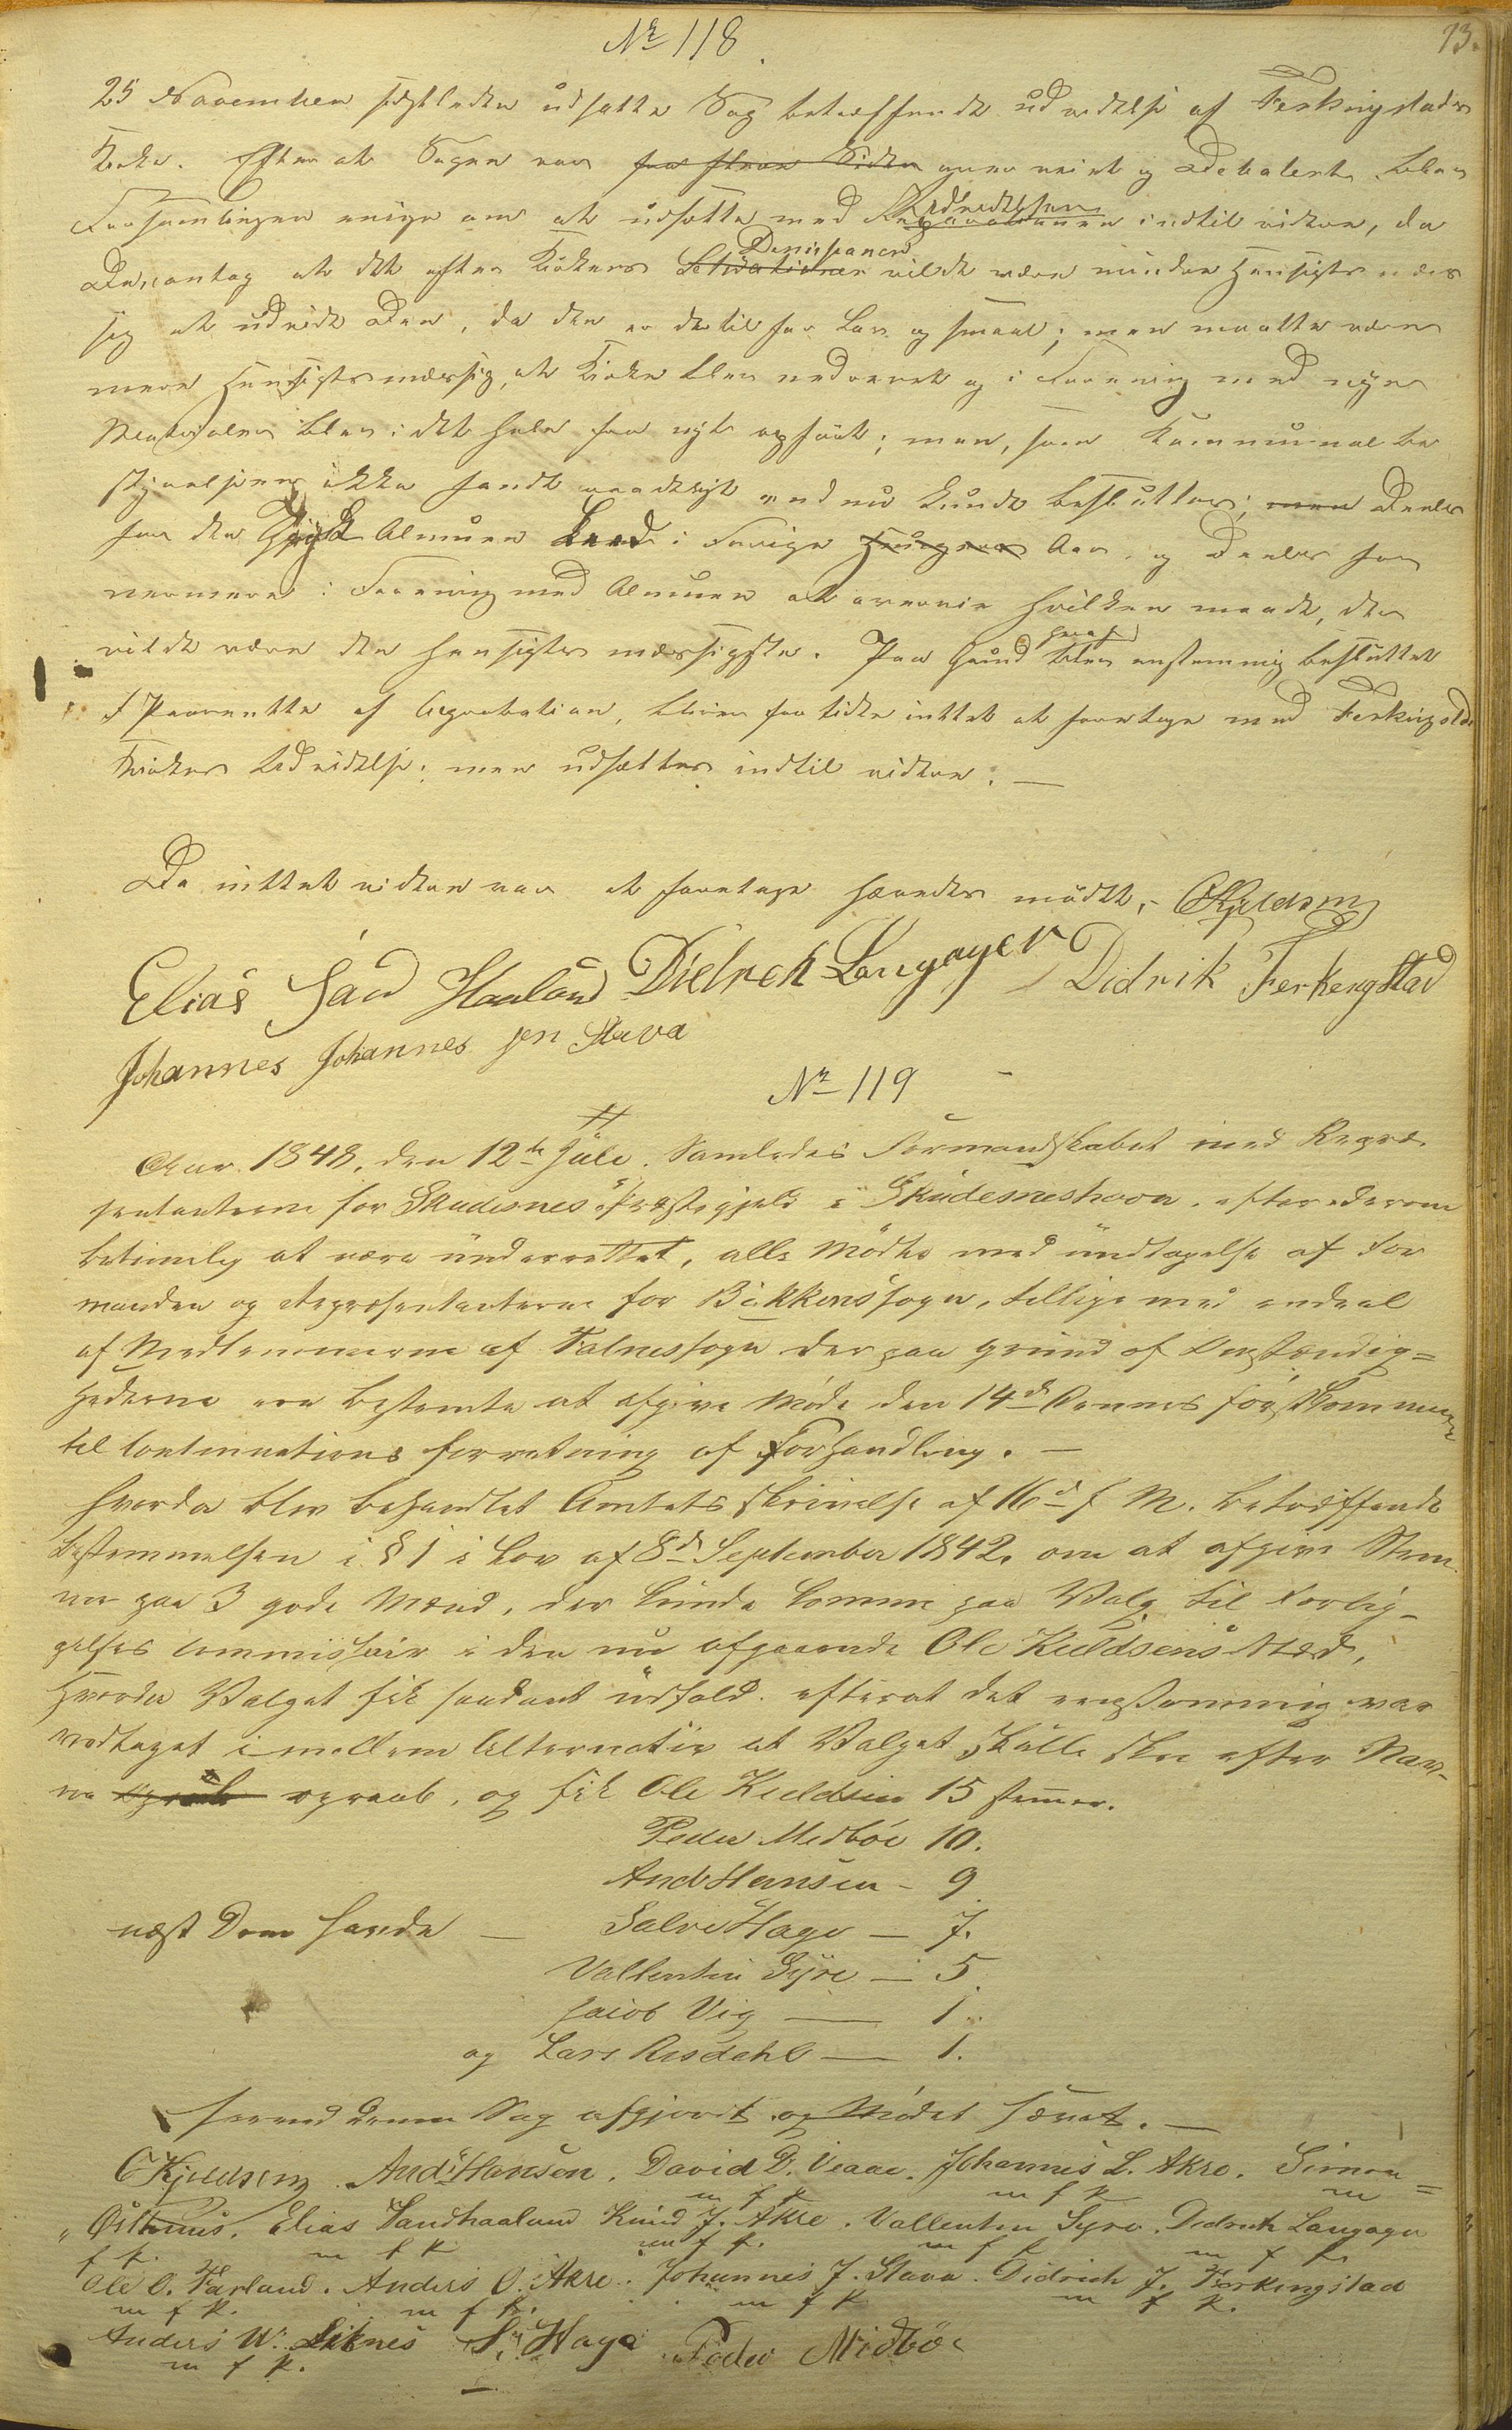 Nr 118
73.
25 November sidstleden udsatte Sag betreffende udvidelse af Ferkingstads
Kirke. Efter at Sagen var over veiet og Debaterte blev
Forsamlingen enige om at udsætte med Udvidelsen indtil videre, da
De antog at det efter Kirkens vilde være mindre Hensigts mæs
sig at udvide Den, da den er dertil for Lav og smaal; men maatte være
mere Hensigtsmæssig, at Kirken blev nedrevet og i Forening med nye
Materialer blev i det hele paa nyt opsat; men, som Kommunalbe
styrelsen ikke fandt raadeligt end nu kunde beslutter; men Deels
for den Almuen i Forige Aar, og Deels for
nermere i Forening med Almuen at overveie hvilken maade, der
vilde være den hensigts mæssigste. Paa Grund heraf blev enstemmig besluttet
I Paavente af Approbation, bliver for tiden inttet at foretage med Ferkingstads
Kirkes Udvidelse; men udsættes indtil videre. —
Da inttet videre var at foretage hævedes mödet, - OKjeldsen
Elias San Haaland Didrich Langager Didrik Ferkengstad
Johannes Johannes sen Stava
Nr 119
Aar 1848, den 12te Juli. Samledes Formandskabet med Repræ-
sentanterne for Skudesnes Præstegjeld i Skudesneshavn, efter derom
betimelig at være underrettet, alle Mödte med undtagelse af For
manden og Repræsentanterne for Bökkens sogn, tillige med endeel
af Medlemmerne af Falnes sogn der paa grund af Omstændig=
hederne ere bestemte at afgive Møde den 14de Dennes förstkommende
til Continuations forretning af Forhandling. —
hvorda blev behandlet Amtets skrivelse af 16de f. M. betreffende
bestemmelsen i § 1 i Lov af 8de September 1842. om at afgive Stem
mer paa 3 gode Mænd, der kunde komme paa Valg til Forlig-
gelses Commissair i den nu afgaaende Ole Kieldsens Stæd,
hvorda Valget fik saadant udfald. efterat det eenstemmig var
vedtaget imellem Alternativ at Valget skulle skee efter Nav-
ne opraab, og fik Ole Kieldsen 15 stemmer.
Peder Medböe 10.
And Hansen - 9
næst Dem havde — Salve Hage — 7.
Vallentin Syre — 5
Jacob Vig — 1.
og Lars Risdahl — 1.
hermed denne Sag afgjort og Mödet hævet. —
OKjeldsen. And: Hansen. David D. Veaae. Johannes L. Akre. Simon =
m f p m f p m
" Østhuus. Elias Sandhaaland Knud J. Akre. Vallentin Syre. Didrich Langager
f p. m f p. m f p. m f p m f p.
Ole O. Færland. Anders O. Akre. Johannes J. Stava. Didrich J. Ferkingstad
m f p. m f p. m f p m f p.
Anders W. Liknes S. Hage Peder Midböe
m f p.